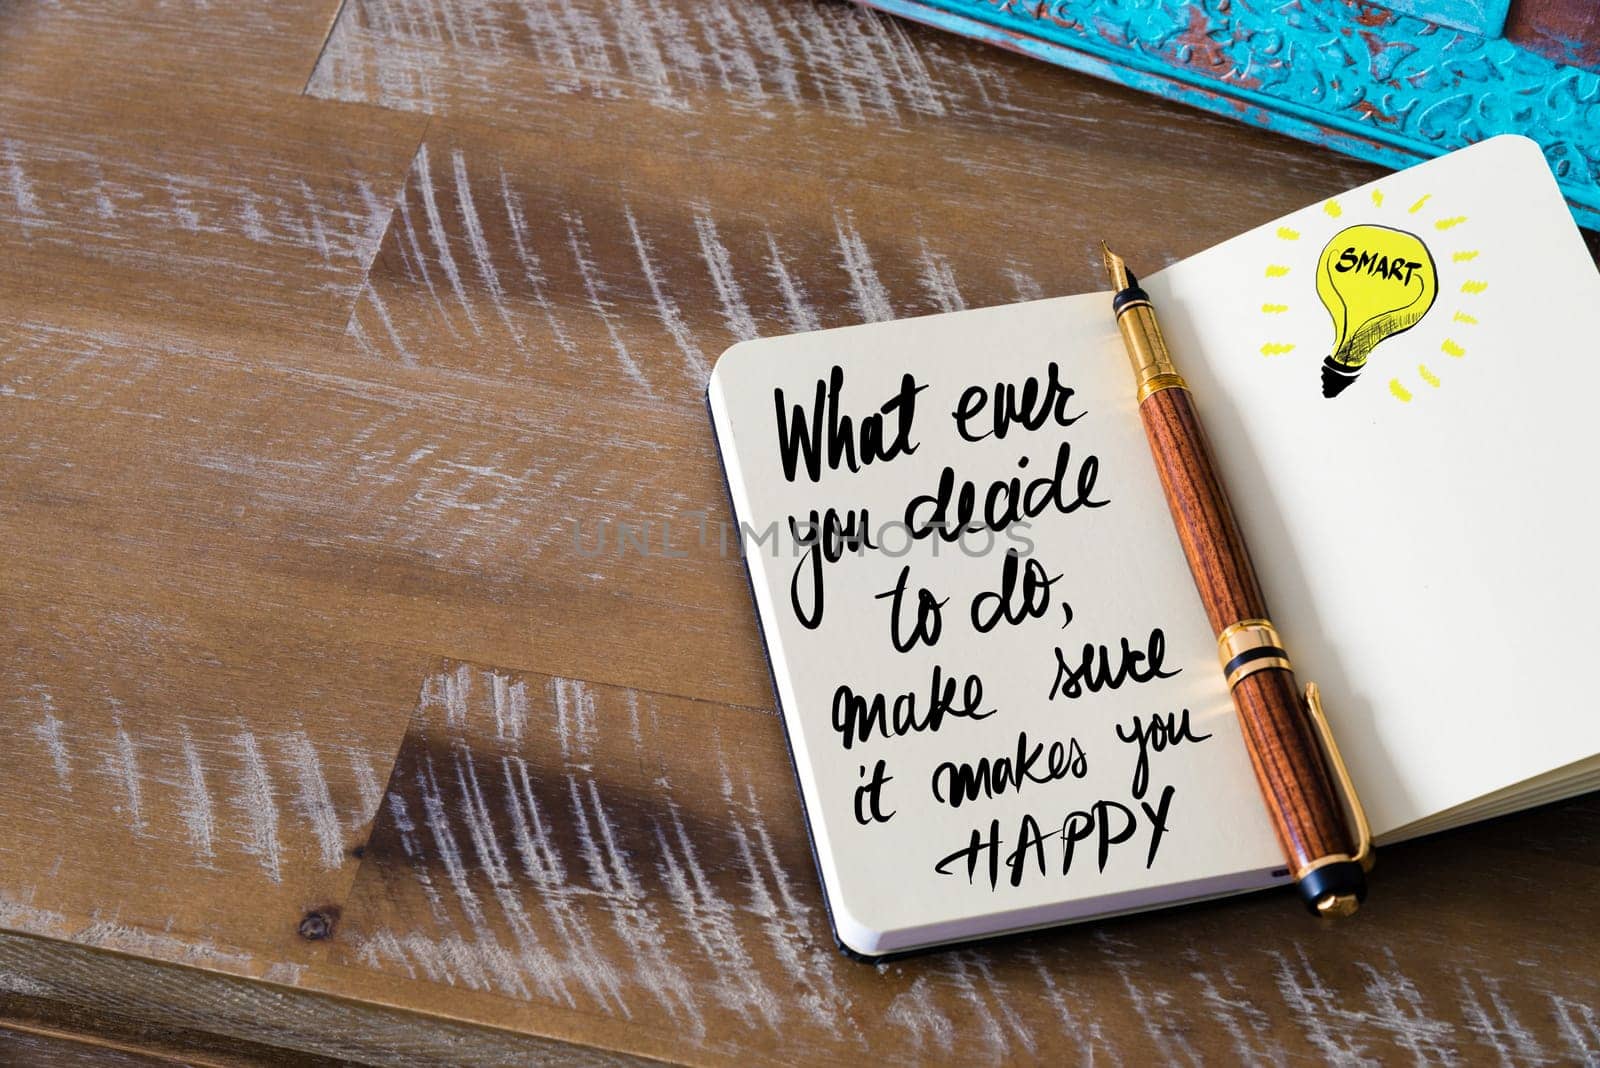 What ever
you decide
to do,
make sure
it makes you
HAPPY
SMART
UNLIMPHOTOS